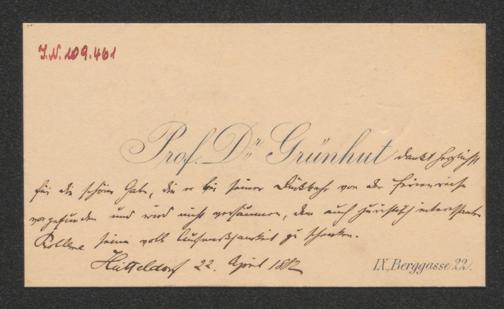 J.N. 109.461
Prof. Dr. Grünhut dankt herzlichst
für die schöne Gabe, die er bei seiner Rückkehr von der Ferienreise
vorgefunden und wird nicht versäumen, dem auch juristisch interessanten
seine volle Aufmerksamkeit zu schenken.
Hütteldorf 22. April 18
IX. Berggasse 22.